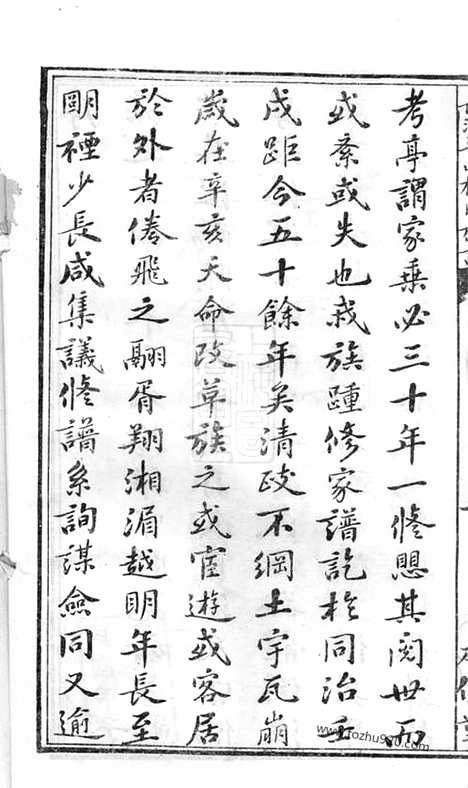 考亭謂家乗必三十年一修懸其閱世而
或紊或失也我族踵修家譜訖於同治壬
戌距今五十餘年矣清政不綱土宇瓦崩
歲在辛亥天命改革族之或宦遊或客居
於外者倦飛之翮胥翔湘湄越明年長至
明禋少長咸集議修譜系詢謀僉同又逾
www.fozhu920.com